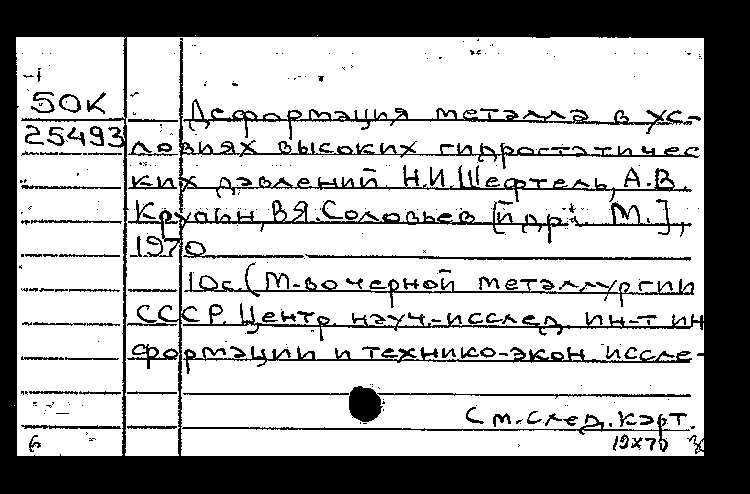 50К
25493
Деформация металла в ус-
ловиях высоких гидростатичес
ких давлений. Н.И.Шефтель, А.В.
Крупин, В.Я.Соловьев [и др. М.],
1970
10с. (М-во черной металлургии
СССР. Центр. науч.-исслед. ин-т ин
формации и технико-экон. иссле-
См. след. карт.
6 19х70